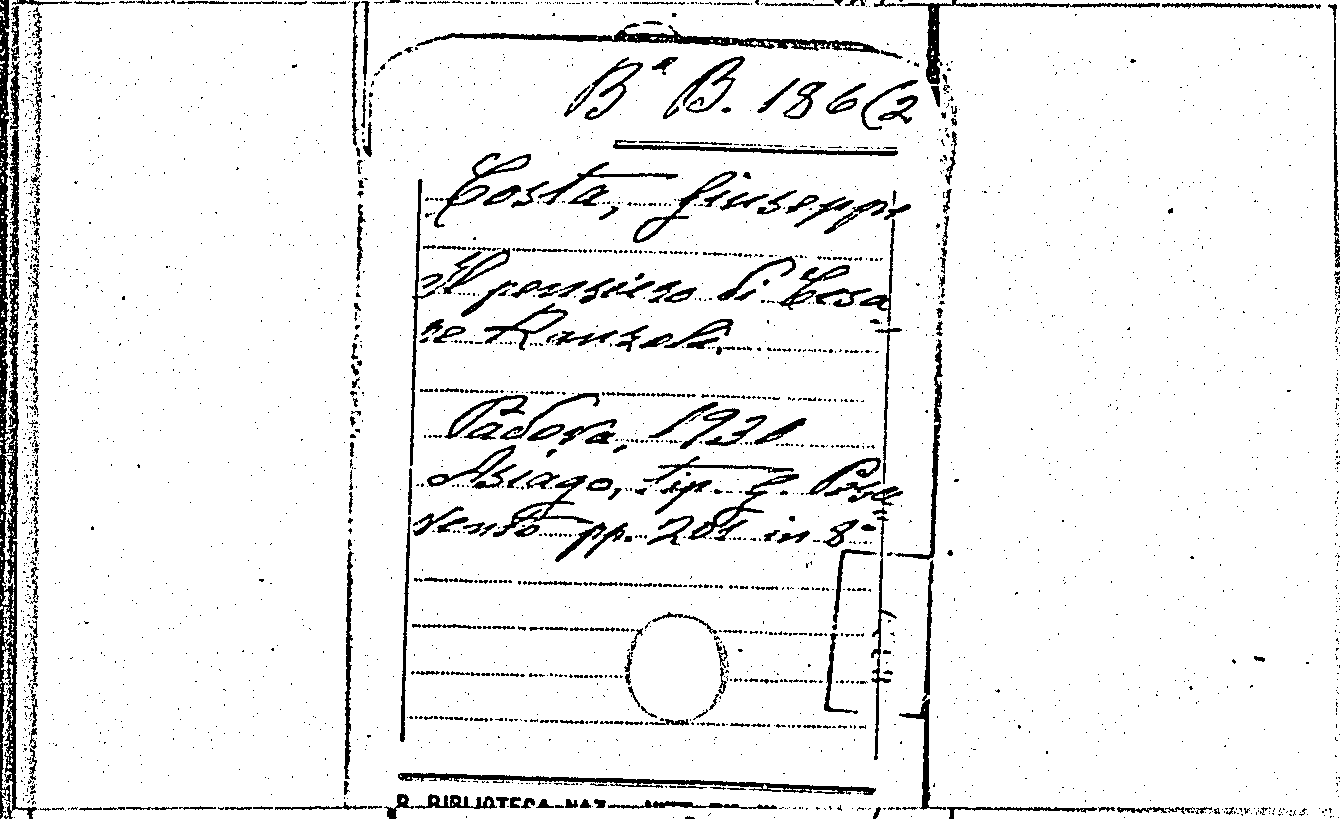 Bª B. 186(2
Costa, Giuseppe
Il pensiero di Cesa
re Ranzoli.
Padova, 1930
Asiago, tip. G.
vento pp. 201 in 8°
R. BIBLIOTECA NAZ.